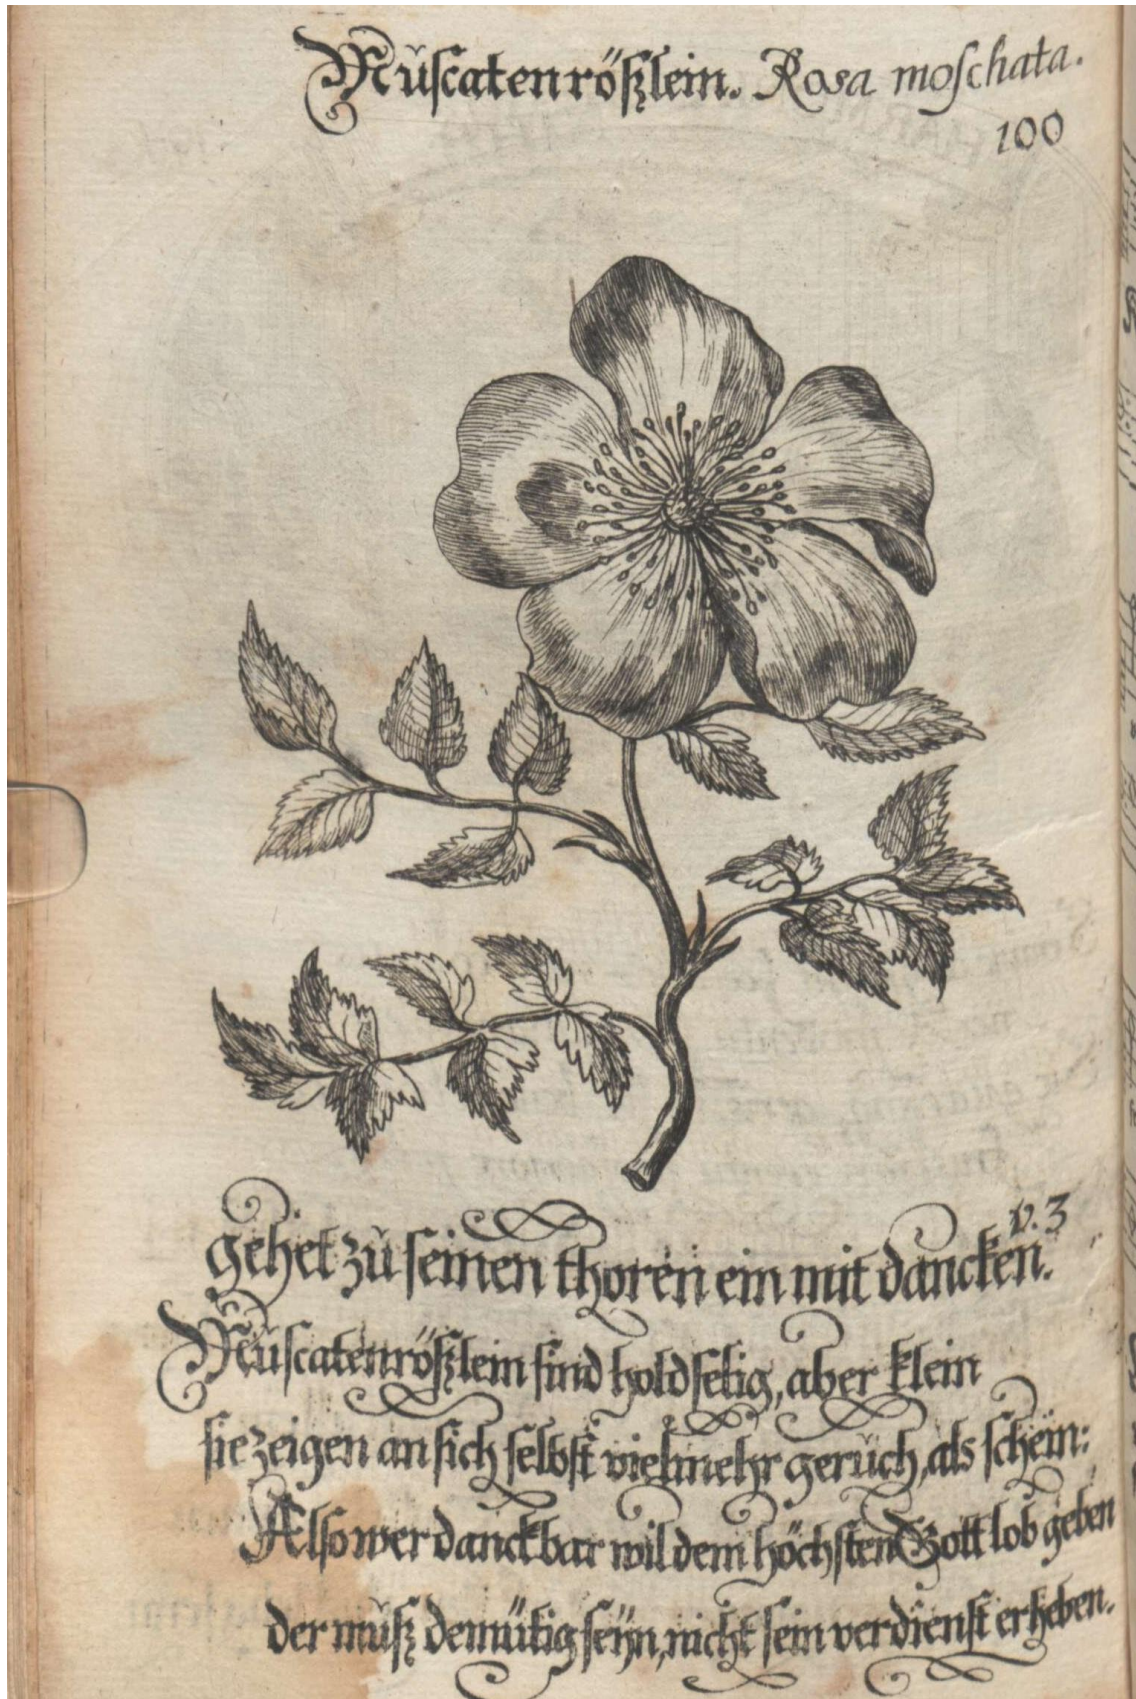 Muſcatenrößlein. Rosa moſchata.
100
v. 3
gehet zu ſeinen thoren ein mit dancken.
Muſcatenrößlein ſind holdſelig, aber klein
ſie zeigen an ſich ſelbſt vielmehr geruch, als ſchein:
Alſo wer danckbar wil dem höchſten Gott lob geben
der muß demütig ſeÿn, nicht ſein verdienſt erheben.